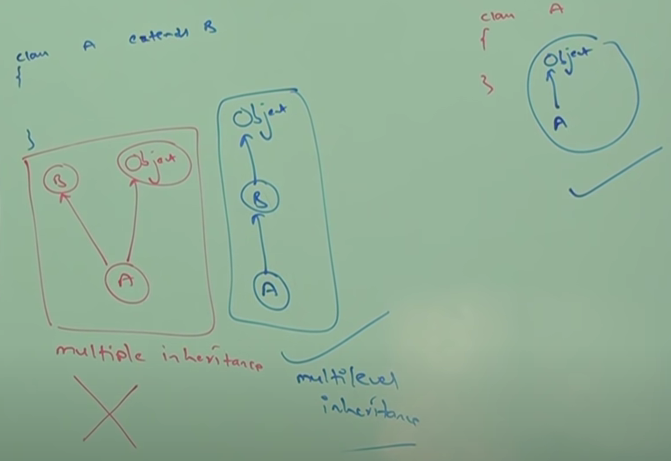 class A extends B
{
}
B
Object
A
multiple inheritance
Object
B
A
multilevel
inheritance
class A
{
}
Object
A